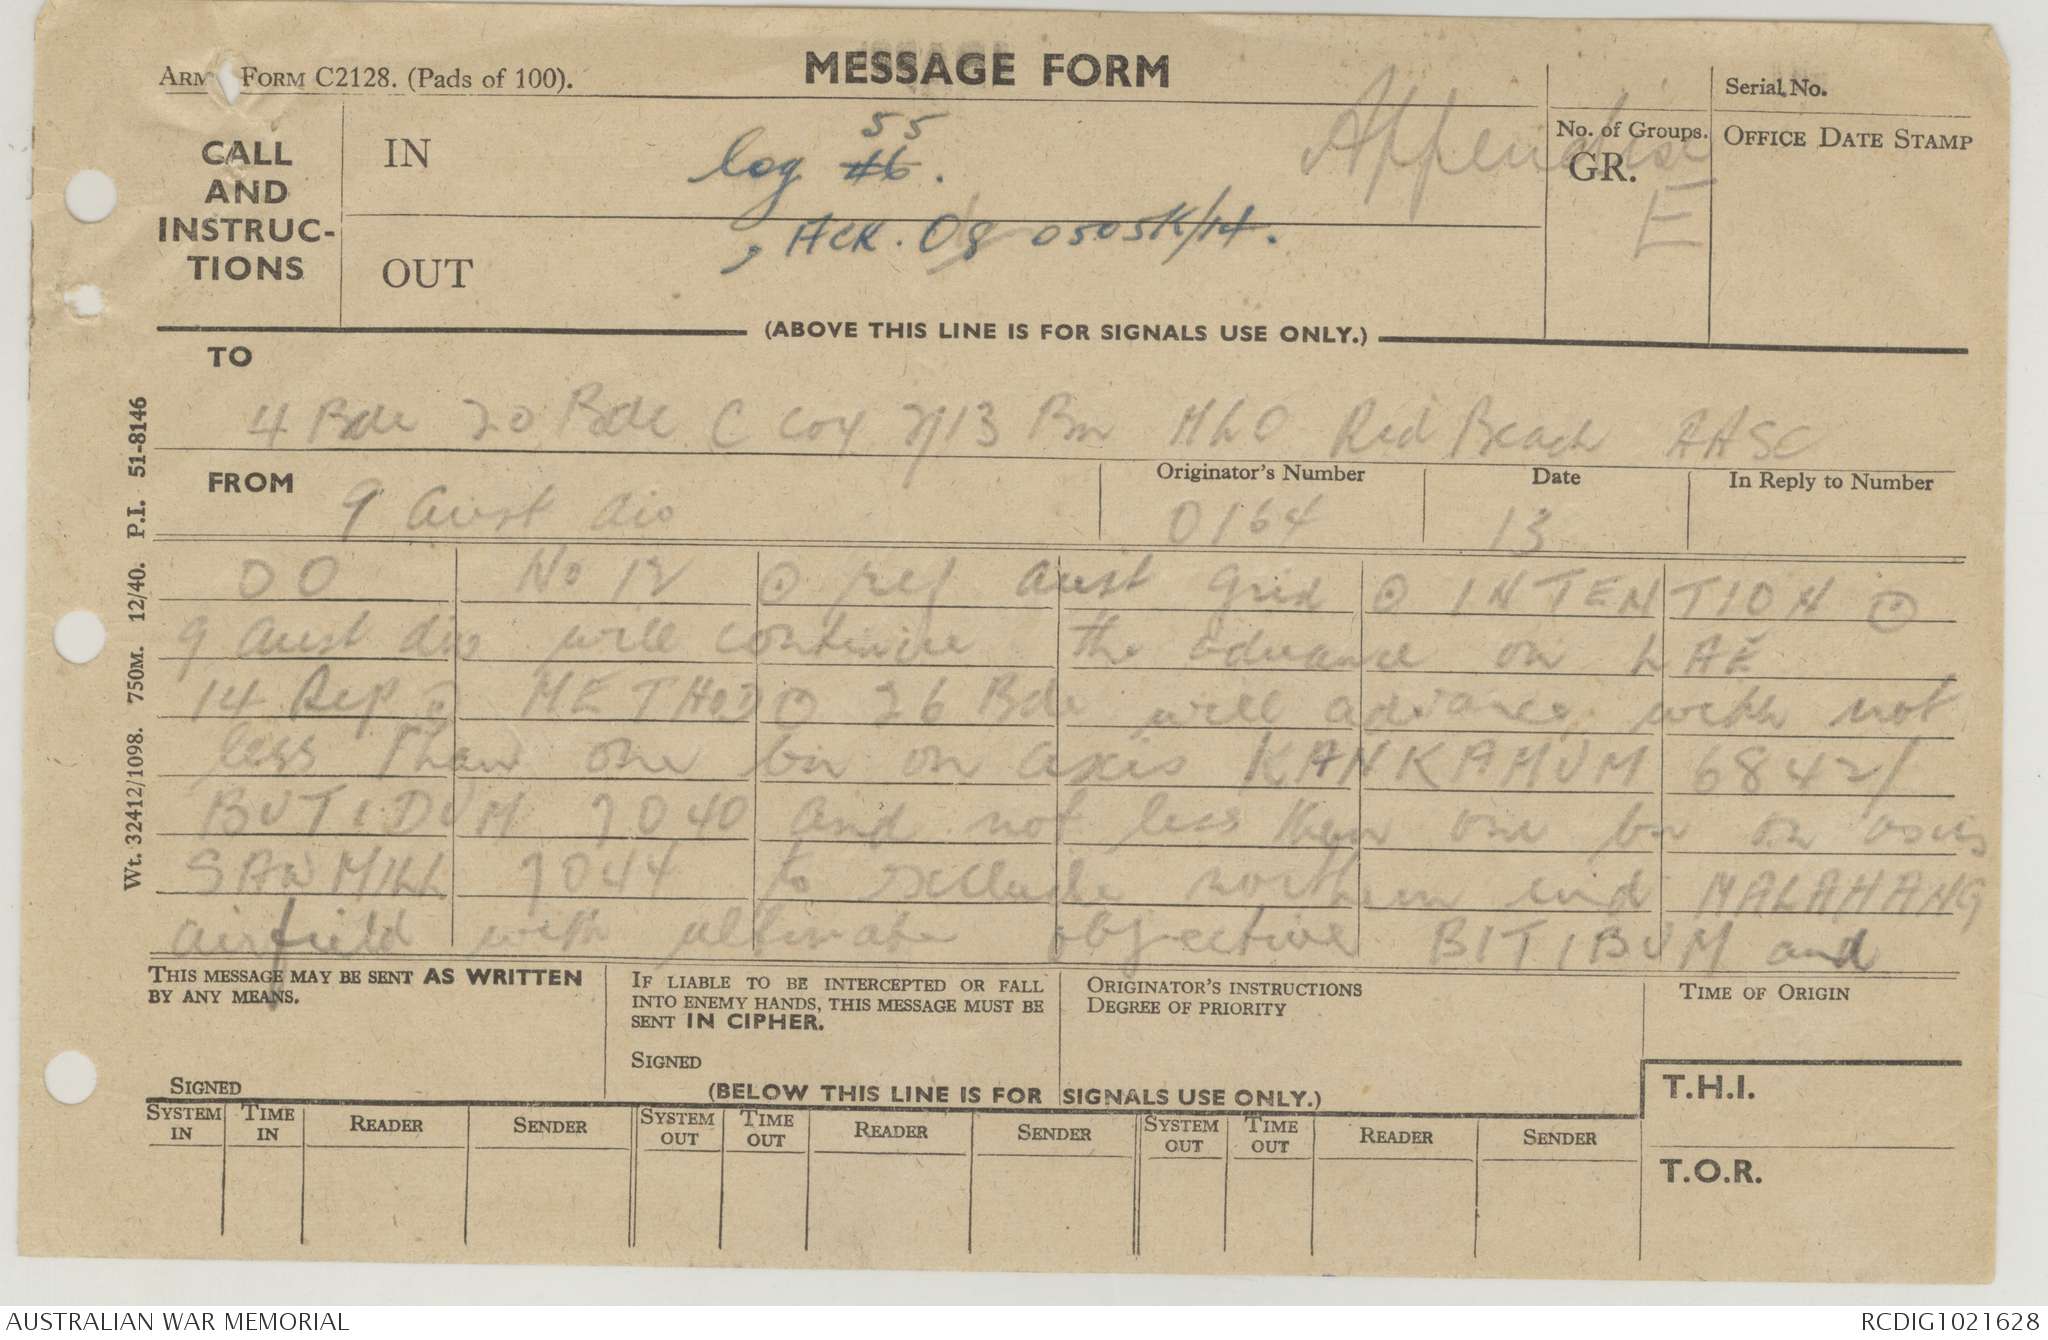 MESSAGE FORM
ARMY FORM C2128. (Pads of 100).
Serial No.
CALL AND INSTRUC-TIONS
IN
log 46. 55
Appendix E
No. of Groups.
GR.
OFFICE DATE STAMP
OUT
, Ack. 0505K/14.
(ABOVE THIS LINE IS FOR SIGNALS USE ONLY.)
TO
4 Bde 20 Bde C Coy 2/13 Bn MLO Red Beach AASC
FROM
9 Aust div
Originator's Number
0164
Date
13
In Reply to Number
OO No 12 ⊙ ref aust grid ⊙ INTENTION ⊙
9 Aust div will continue the advance on LAE
14 Sep ⊙ METHOD ⊙ 26 Bde will advance with not
less than one bn on axis KANKAMUM 6842/
BUTIDUM 7040 and not less than one bn on axis
SAWMILL 7044 to exclude northern end MALAHANG
airfield with ultimate objective BITIBUM and
Wt. 32412/1098. 750M. 12/40. P.I. 51-8146
THIS MESSAGE MAY BE SENT AS WRITTEN
BY ANY MEANS.
SIGNED
IF LIABLE TO BE INTERCEPTED OR FALL
INTO ENEMY HANDS, THIS MESSAGE MUST BE
SENT IN CIPHER.
SIGNED
ORIGINATOR'S INSTRUCTIONS
DEGREE OF PRIORITY
TIME OF ORIGIN
(BELOW THIS LINE IS FOR SIGNALS USE ONLY.)
T.H.I.
SYSTEM IN TIME IN READER SENDER SYSTEM OUT TIME OUT READER SENDER SYSTEM OUT TIME OUT READER SENDER
T.O.R.
AUSTRALIAN WAR MEMORIAL
RCDIG1021628